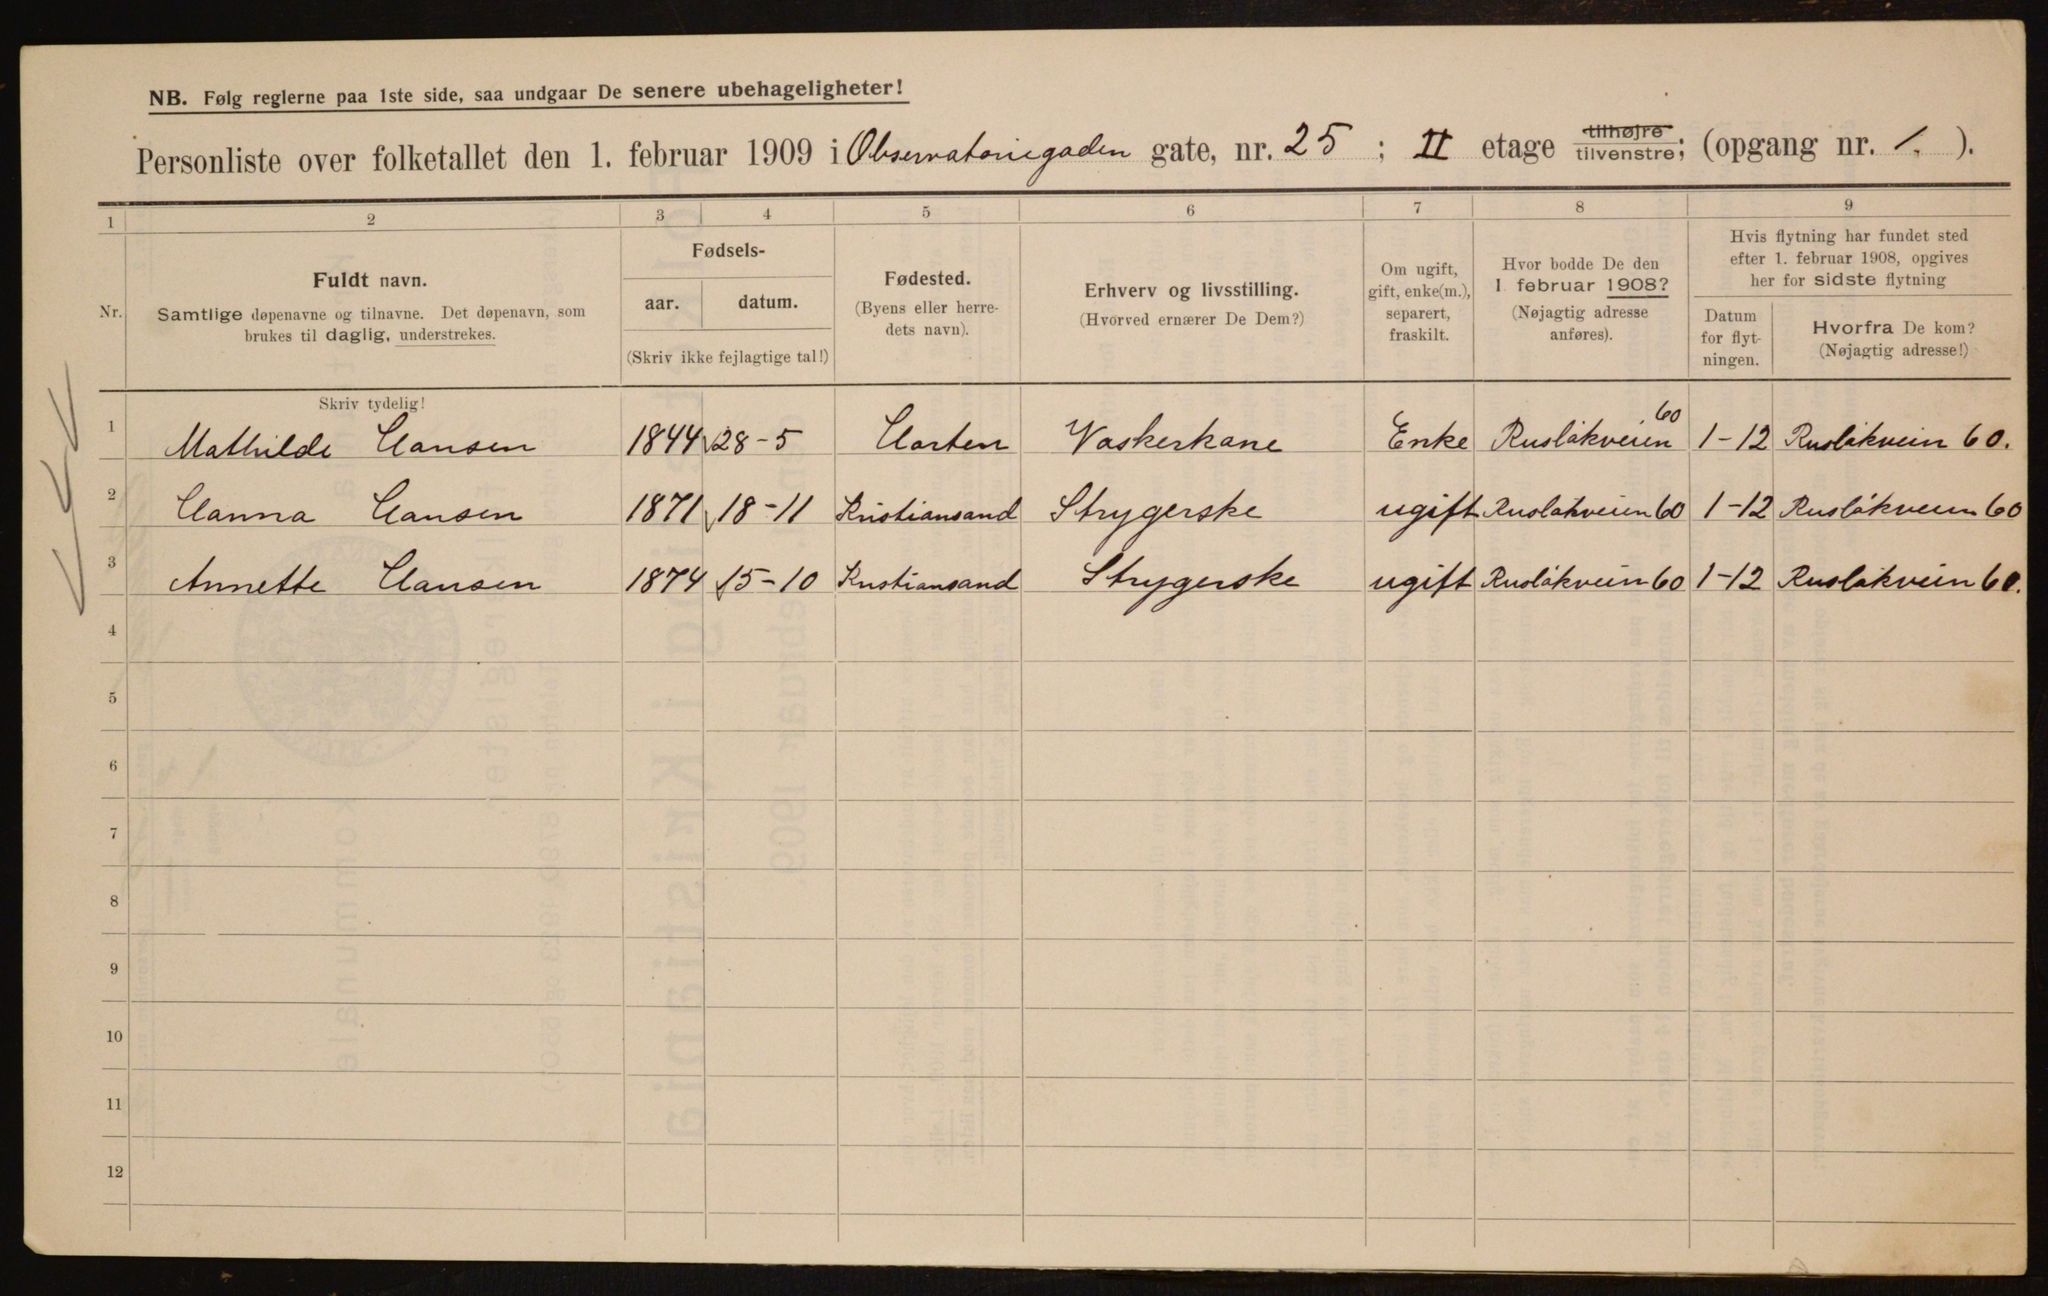 NB. Følg reglerne paa 1ste side, saa undgaar De senere ubehageligheter!
Personliste over folketallet den 1. februar 1909 i Observatoriegaden gate, nr. 25 ; II etage tilhøjre tilvenstre; (opgang nr. 1. ).
1 2 3 4 5 6 7 8 9
Nr.
Fuldt navn.
Samtlige døpenavne og tilnavne. Det døpenavn, som
brukes til daglig, understrekes.
Fødsels-
aar. datum.
(Skriv ikke fejlagtige tal!)
Fødested.
(Byens eller herre-
dets navn).
Erhverv og livsstilling.
(Hvorved ernærer De Dem?)
Om ugift,
gift, enke(m.),
separert,
fraskilt.
Hvor bodde De den
1. februar 1908?
(Nøjagtig adresse
anføres).
Hvis flytning har fundet sted
efter 1. februar 1908, opgives
her for sidste flytning
Datum
for flyt-
ningen.
Hvorfra De kom?
(Nøjagtig adresse!)
Skriv tydelig!
1 Mathilde Hansen 1844 28-5 Horten Vaskerkone Enke Rusløkveien 60 1-12 Rusløkvein 60.
2 Hanna Hansen 1871 18-11 Kristiansand Strygerske ugift Rusløkveien 60 1-12 Rusløkveien 60
3 Annette Hansen 1874 15-10 Kristiansand Strygerske ugift Rusløkvein 60 1-12 Rusløkvein 60.
4
5
6
7
8
9
10
11
12